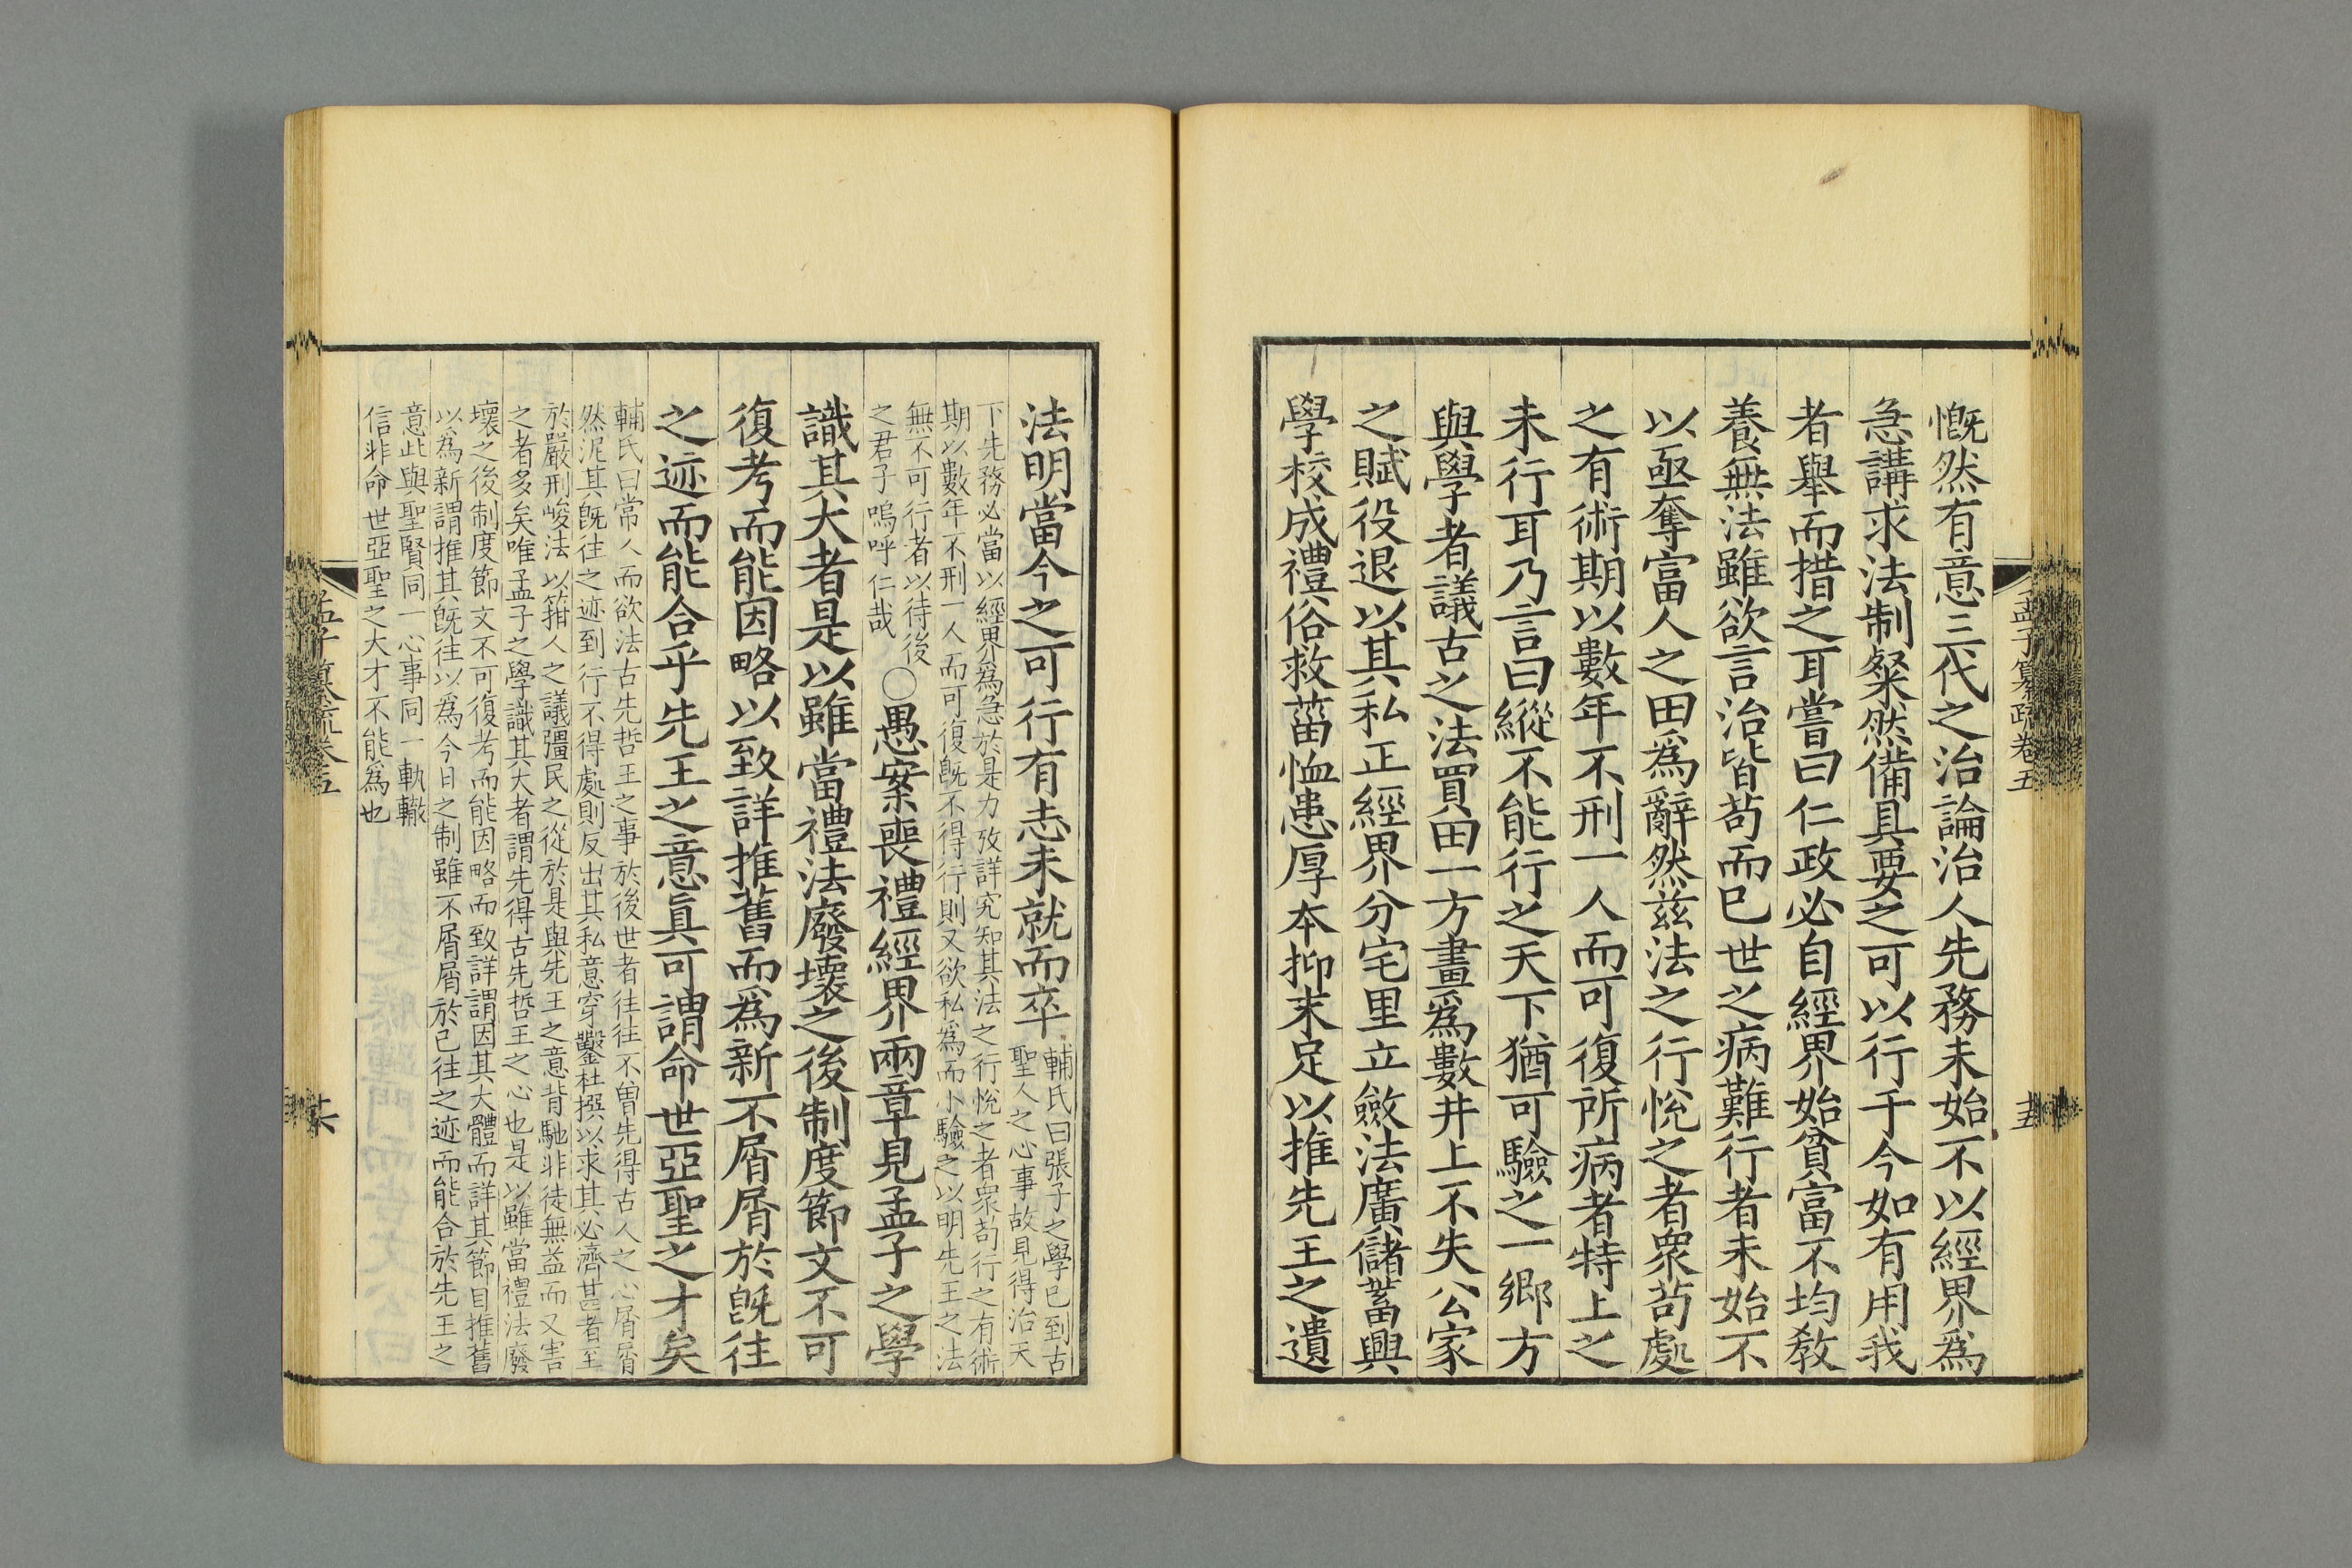 孟子纂疏卷五
十五
慨然有意三代之治論治人先務未始不以經界爲
急講求法制粲然備具要之可以行于今如有用我
者舉而措之耳嘗曰仁政必自經界始貧富不均敎
養無法雖欲言治皆苟而已世之病難行者未始不
以亟奪富人之田爲辭然兹法之行悅之者衆苟處
之有術期以數年不刑一人而可復所病者特上之
未行耳乃言曰縱不能行之天下猶可驗之一鄉方
與學者議古之法買田一方畫爲數井上不失公家
之賦役退以其私正經界分宅里立斂法廣儲蓄興
學校成禮俗救菑恤患厚本抑末足以推先王之遺
法明當今之可行有志未就而卒
輔氏曰張子之學已到古
聖人之心事故見得治天
下先務必當以經界爲急於是力攷詳究知其法之行悅之者衆苟行之有術
期以數年不刑一人而可復旣不得行則又欲私爲而小驗之以明先王之法
無不可行者以待後
之君子嗚呼仁哉
○愚案喪禮經界兩章見孟子之學
識其大者是以雖當禮法廢壞之後制度節文不可
復考而能因略以致詳推舊而爲新不屑屑於旣往
之迹而能合乎先王之意眞可謂命世亞聖之才矣
輔氏曰常人而欲法古先哲王之事於後世者往往不曾先得古人之心屑屑
然泥其旣往之迹到行不得處則反出其私意穿鑿杜撰以求其必濟甚者至
於嚴刑峻法以箝人之議彊民之從於是與先王之意背馳非徒無益而又害
之者多矣唯孟子之學識其大者謂先得古先哲王之心也是以雖當禮法廢
壞之後制度節文不可復考而能因略而致詳謂因其大體而詳其節目推舊
以爲新謂推其旣往以爲今日之制雖不屑屑於已往之迹而能合於先王之
意此與聖賢同一心事同一軌轍
信非命世亞聖之大才不能爲也
孟子纂疏卷五